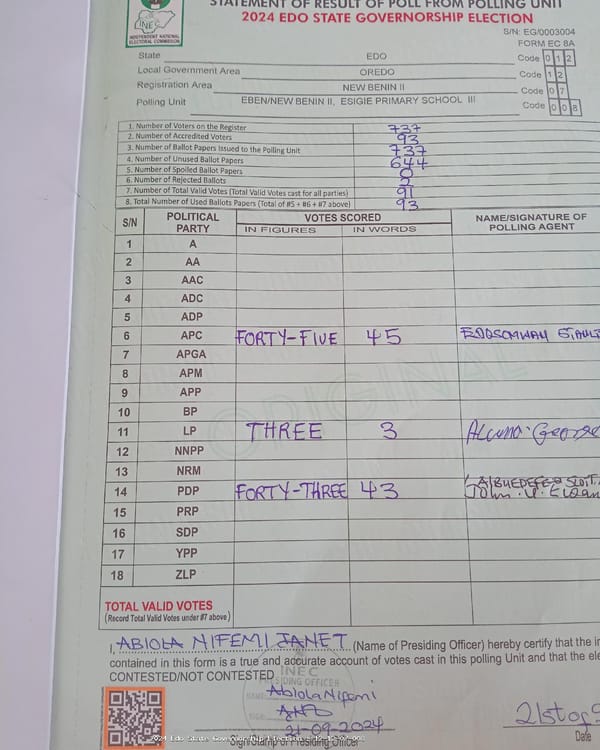 STATEMENT OF RESULT OF POLL FROM POLLING UNIT
2024 EDO STATE GOVERNORSHIP ELECTION
INEC
INDEPENDENT NATIONAL
ELECTORAL COMMISSION
S/N: EG/0003004
FORM EC 8A
State EDO Code 012
Local Government Area OREDO Code 12
Registration Area NEW BENIN II Code 07
Polling Unit EBEN/NEW BENIN II, ESIGIE PRIMARY SCHOOL III Code 008
1. Number of Voters on the Register 737
2. Number of Accredited Voters 93
3. Number of Ballot Papers Issued to the Polling Unit 737
4. Number of Unused Ballot Papers 644
5. Number of Spoiled Ballot Papers 0
6. Number of Rejected Ballots 2
7. Number of Total Valid Votes (Total Valid Votes cast for all parties) 91
8. Total Number of Used Ballots Papers (Total of #5 + #6 + #7 above) 93
S/N POLITICAL PARTY VOTES SCORED NAME/SIGNATURE OF POLLING AGENT
IN FIGURES IN WORDS
1 A
2 AA
3 AAC
4 ADC
5 ADP
6 APC FORTY-FIVE 45
7 APGA
8 APM
9 APP
10 BP
11 LP THREE 3 George
12 NNPP
13 NRM
14 PDP FORTY-THREE 43
John
15 PRP
16 SDP
17 YPP
18 ZLP
ORIGINAL
TOTAL VALID VOTES
(Record Total Valid Votes under #7 above)
I, ABIOLA NIFEMI JANET (Name of Presiding Officer) hereby certify that the in
contained in this form is a true and accurate account of votes cast in this polling Unit and that the ele
CONTESTED/NOT CONTESTED
INEC
PRESIDING OFFICER
NAME: Abiola Nifemi
SIGN:
21-09-2024
Sign/Stamp of Presiding Officer
21st of S
Date
2024 Edo State Governorship Election